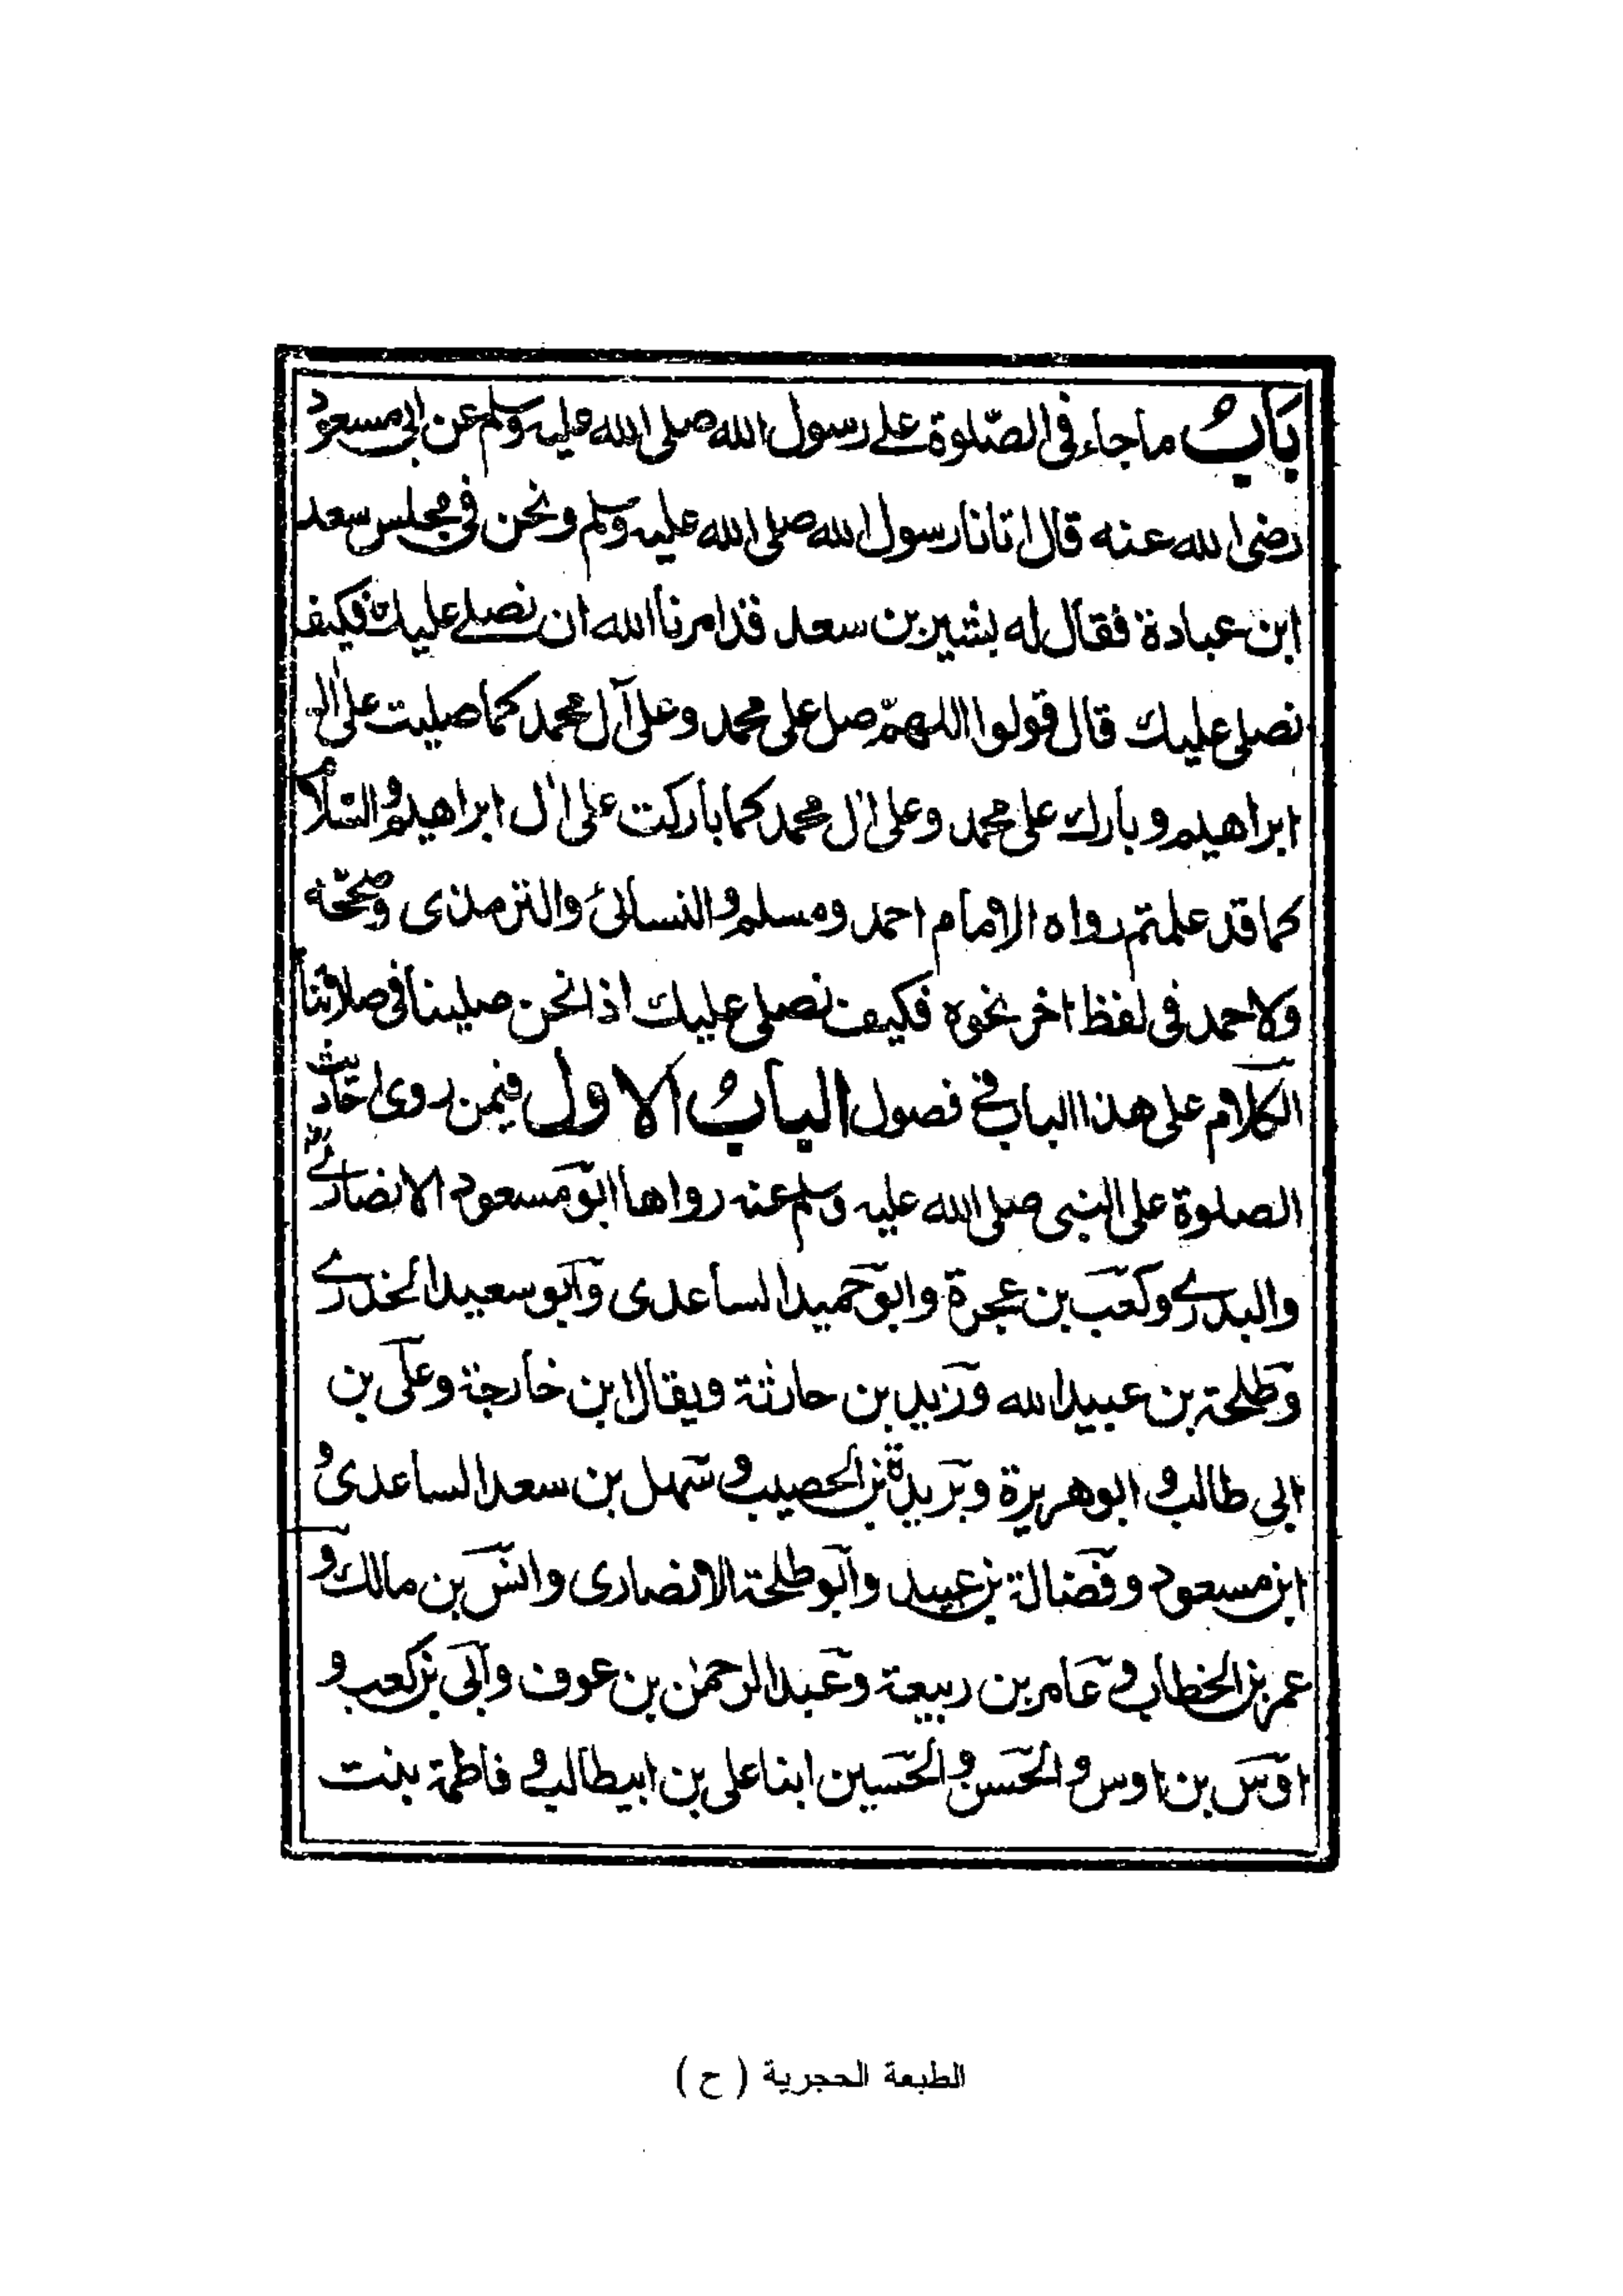 بَابُ ماجاء فى الصّلوة على رسول الله صلى الله عليه وسلم عن ابى مسعود
رضى الله عنه قال اتانا رسول الله صلى الله عليه وسلم ونحن فى مجلس سعد
ابن عبادة فقال له بشير بن سعد قد امرنا الله ان نصلى عليك فكيف
نصلى عليك قال قولوا اللهمّ صل على محمد وعلى آل محمد كما صليت على ال
ابراهيم وبارك على محمد وعلى ال محمد كما باركت على ال ابراهيم والسّلام
كما قد علمتم رواه الامام احمد ومسلم والنسائ والترمذى وصحّحه
ولاحمد فى لفظ اخر نحوه فكيف نصلى عليك اذا نحن صلينا فى صلاتنا
الكلام على هذا الباب فى فصول الباب الاول فيمن روى احاديث
الصلوة على النبى صلى الله عليه وسلم عنه رواها ابو مسعود الانصارى
والبدرى وكعب بن عجرة وابو حميد الساعدى وابو سعيد الخدرى
وطلحة بن عبيد الله وزيد بن حارثة ويقال ابن خارجة وعلى بن
ابى طالب و ابوهريرة وبريدة بن الحصيب و سهل بن سعد الساعدى و
ابن مسعود وفضالة بن عبيد وابو طلحة الانصارى وانس بن مالك و
عمر بن الخطاب و عامر بن ربيعة وعبد الرحمن بن عوف وابى بن كعب و
اوس بن اوس و الحسن و الحسين ابنا على بن ابيطالب و فاطمة بنت
الطبعة الحجرية ( ح )